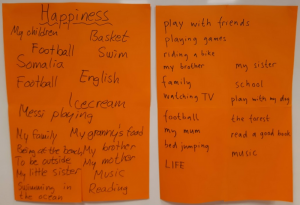 Happiness
My children
Basket
Football
Swim
Somalia
English
Football
Icecream
Messi playing
My family
My granny's food
Being at the beach
My brother
To be outside
My mother
My little sister
Music
Swimming in the ocean
Reading
play with friends
playing games
riding a bike
my brother
my sister
family
school
watching TV
play with my dog
football
the forest
my mum
read a good book
bed jumping
music
LIFE